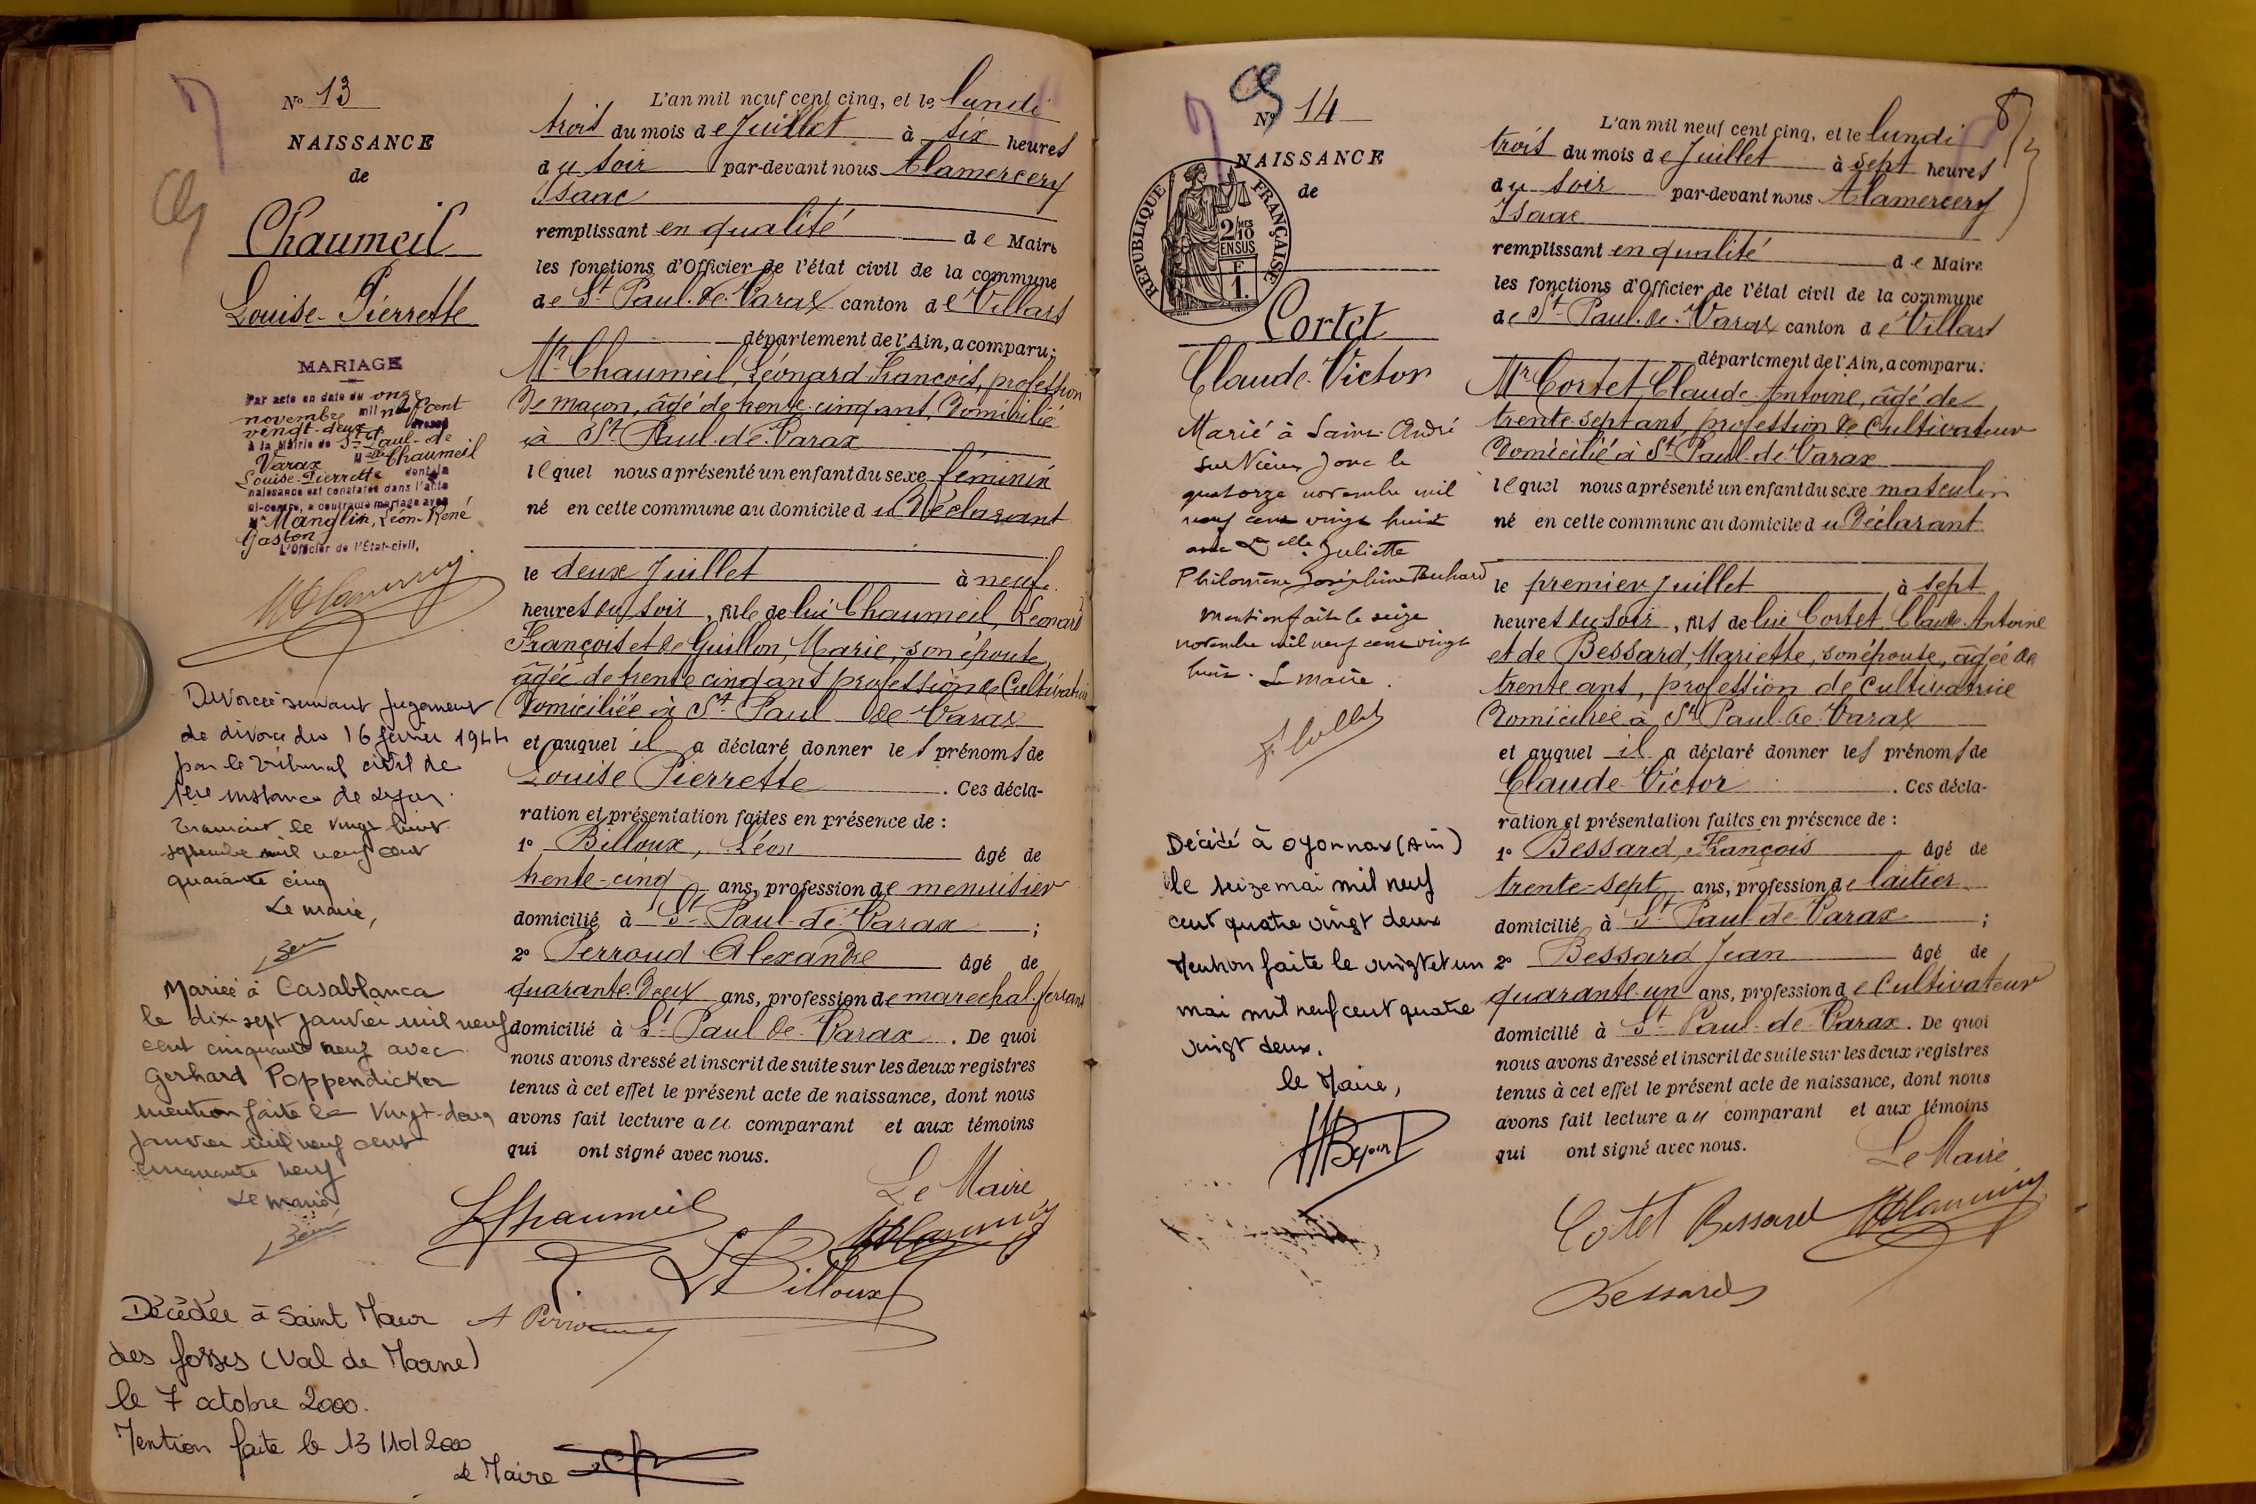 N° 13
NAISSANCE
de
Chaumeil
Louise-Pierrette
MARIAGE
Par acte en date du onze
novembre mil neuf cent
vingt-deux dressé
à la Mairie de St Paul-de
Varax Chaumeil
Louise-Pierrette dont la
naissance est constatée dans l'acte
ci-contre, a contracté mariage avec
Mr Manglin, Léon-René
Gaston
L'Officier de l'État-civil,
Divorcée suivant jugement
de divorce du 16 février 1944
par le Tribunal civil de
1ère instance de Lyon.
Transcrit le vingt huit
septembre mil neuf cent
quarante cinq
Le maire,
Mariée à Casablanca
le dix-sept janvier mil neuf
cent cinquante neuf avec
Gerhard Poppendicker
mention faite le vingt-deux
janvier mil neuf cent
cinquante neuf
Le maire
Décédée à Saint Maur
des fossés (Val de Marne)
le 7 octobre 2000.
Mention faite le 13/10/2000
Le Maire
L'an mil neuf cent cinq, et le lundi
trois du mois de Juillet à six heures
du soir par-devant nous Alamercery
Isaac
remplissant en qualité de Maire
les fonctions d'Officier de l'état civil de la commune
de St Paul-de-Varax canton de Villars
département de l'Ain, a comparu:
Mr Chaumeil, Léonard-François, profession
de maçon, âgé de trente-cinq ans, domicilié
à St Paul-de-Varax
lequel nous a présenté un enfant du sexe féminin
né en cette commune au domicile du Déclarant
le deux Juillet à neuf
heures du soir, fille de lui Chaumeil, Léonard
François et de Guillon, Marie, son épouse,
âgée de trente cinq ans profession de Cultivatrice
Domiciliée à St Paul de Varax
et auquel il a déclaré donner les prénoms de
Louise Pierrette. Ces décla-
ration et présentation faites en présence de :
1° Billoux, Léon âgé de
trente-cinq ans, profession de menuisier
domicilié à St Paul-de-Varax ;
2° Perroud Alexandre âgé de
quarante-deux ans, profession de marechal-ferrant
domicilié à St Paul de Varax. De quoi
nous avons dressé et inscrit de suite sur les deux registres
tenus à cet effet le présent acte de naissance, dont nous
avons fait lecture au comparant et aux témoins
qui ont signé avec nous.
Le Maire
LfChaumeil
L Billoux
A Perroud
N° 14
NAISSANCE
de
RÉPUBLIQUE FRANÇAISE
2/10 MES
EN SUS
F
1.
Cortet
Claude-Victor
Marié à Saint-André
sur Vieux Jonc le
quatorze novembre mil
neuf cent vingt huit
avec Delle Juliette
Philomène Joséphine
Mention faite le seize
novembre mil neuf cent vingt
huit. Le maire.
Décédé à Oyonnax (Ain)
le seize mai mil neuf
cent quatre vingt deux
Mention faite le vingt et un
mai mil neuf cent quatre
vingt deux.
le Maire,
8
L'an mil neuf cent cinq, et le lundi
trois du mois de Juillet à sept heures
du soir par-devant nous Alamercery
Isaac
remplissant en qualité de Maire
les fonctions d'Officier de l'état civil de la commune
de St Paul-de-Varax canton de Villars
département de l'Ain, a comparu:
Mr Cortet, Claude-Antoine, âgé de
trente-sept ans, profession de Cultivateur
Domicilié à St Paul-de-Varax
lequel nous a présenté un enfant du sexe masculin
né en cette commune au domicile du Déclarant
le premier Juillet à sept
heures du soir, fils de lui Cortet, Claude-Antoine
et de Bessard, Mariette, son épouse, âgée de
trente ans, profession de Cultivatrice
Domiciliée à St Paul-de-Varax
et auquel il a déclaré donner les prénoms de
Claude-Victor. Ces décla-
ration et présentation faites en présence de :
1° Bessard, François âgé de
trente-sept ans, profession de laitier
domicilié à St Paul-de-Varax ;
2° Bessard Jean âgé de
quarante-un ans, profession de Cultivateur
domicilié à St Paul-de-Varax. De quoi
nous avons dressé et inscrit de suite sur les deux registres
tenus à cet effet le présent acte de naissance, dont nous
avons fait lecture au comparant et aux témoins
qui ont signé avec nous.
Le Maire
Cotet Bessard
Bessard